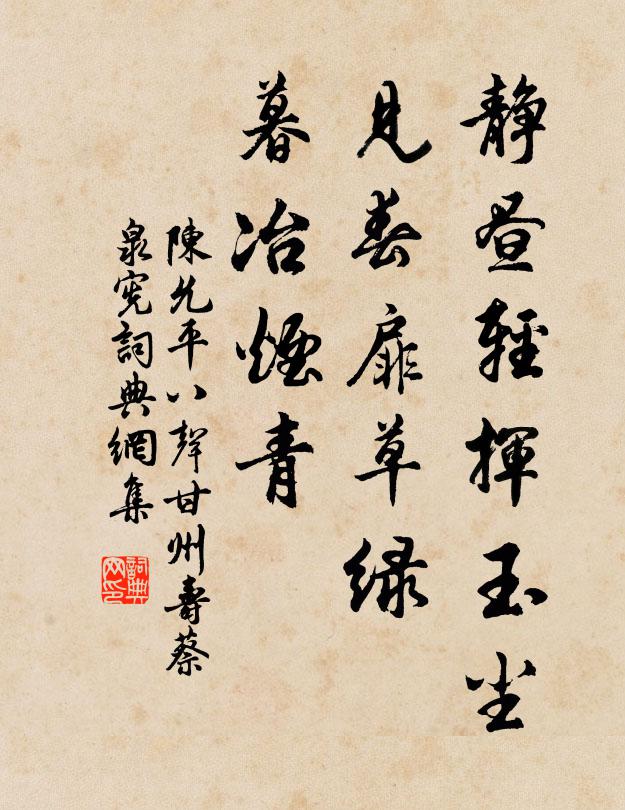 静昼輕揮玉尘
見春扉草绿
暮冶煙青
陳允平八聲甘州壽蔡
泉憲詞典網集
詞典网印